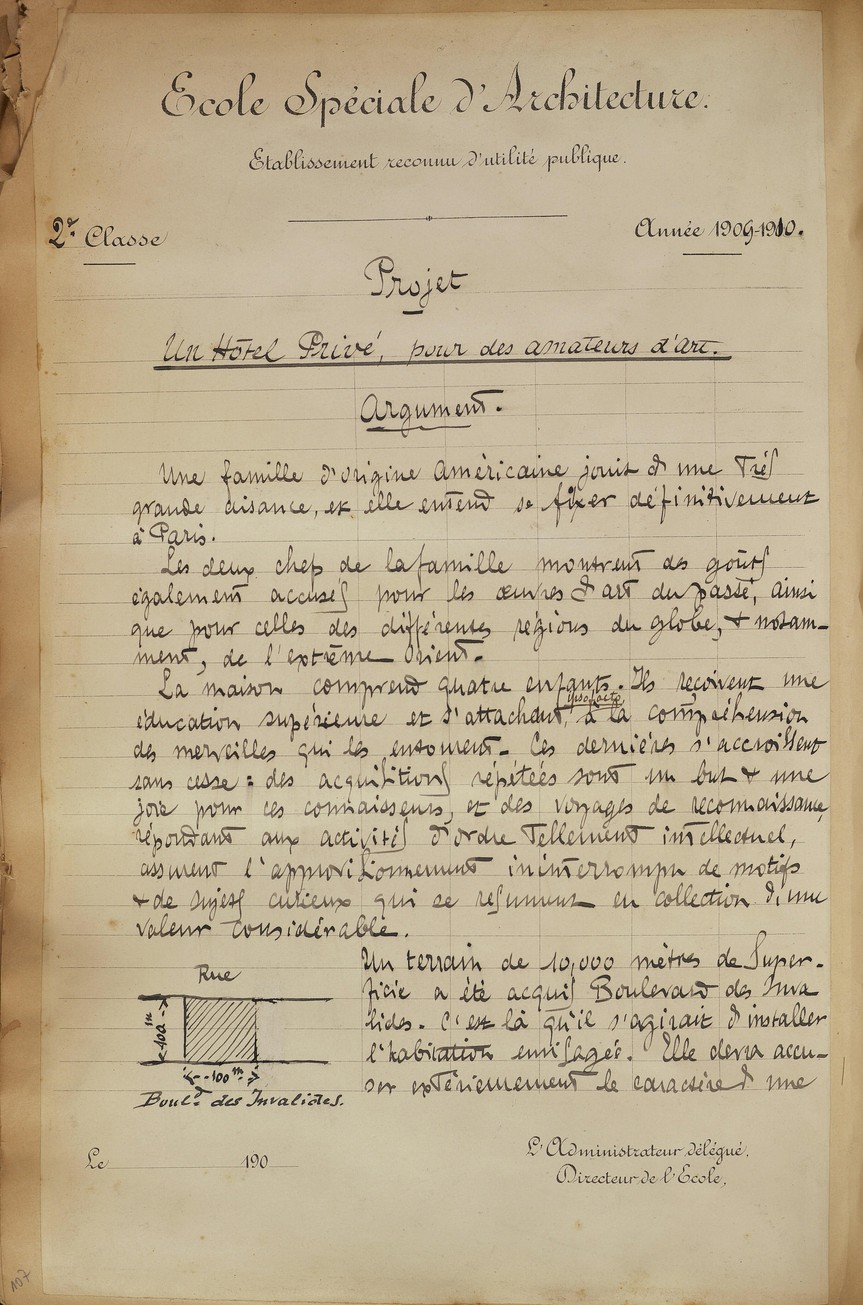 Ecole Spéciale d'Architecture.
Etablissement reconnu d'utilité publique.
2e Classe
Année 1909-1910.
Projet
Un Hôtel Privé, pour des amateurs d'art.
Argument.
Une famille d'origine Américaine jouit d'une Très
grande aisance, et elle entend se fixer définitivement
à Paris.
Les deux chef de la famille montrent des goûts
également accusés pour les œuvres d'art du passé, ainsi
que pour celles des différentes régions du globe, & notam-
ment, de l'extrême Orient.
La maison comprend quatre enfants. Ils reçoivent une
ipso facto
éducation supérieure et s'attachent, à la compréhension
des merveilles qui les entourent. Ces dernières s'accroissent
sans cesse : des acquisitions répétées sont un but & une
joie pour ces connaisseurs, et des voyages de reconnaissance,
répondant aux activités d'ordre Tellement intellectuel,
assurent l'approvisionnement ininterrompu de motifs
& de sujets curieux qui se résument en collection d'une
valeur considérable.
Un terrain de 10,000 mètres de Super-
ficie a été acquis Boulevard des Inva
lides. C'est là qu'il s'agirait d'installer
l'habitation envisagée. Elle devra accu-
ser extérieurement le caractère d'une
Rue
100m
100m
Boul.d des Invalides.
Le 190
L'Administrateur délégué,
Directeur de l'Ecole,
107